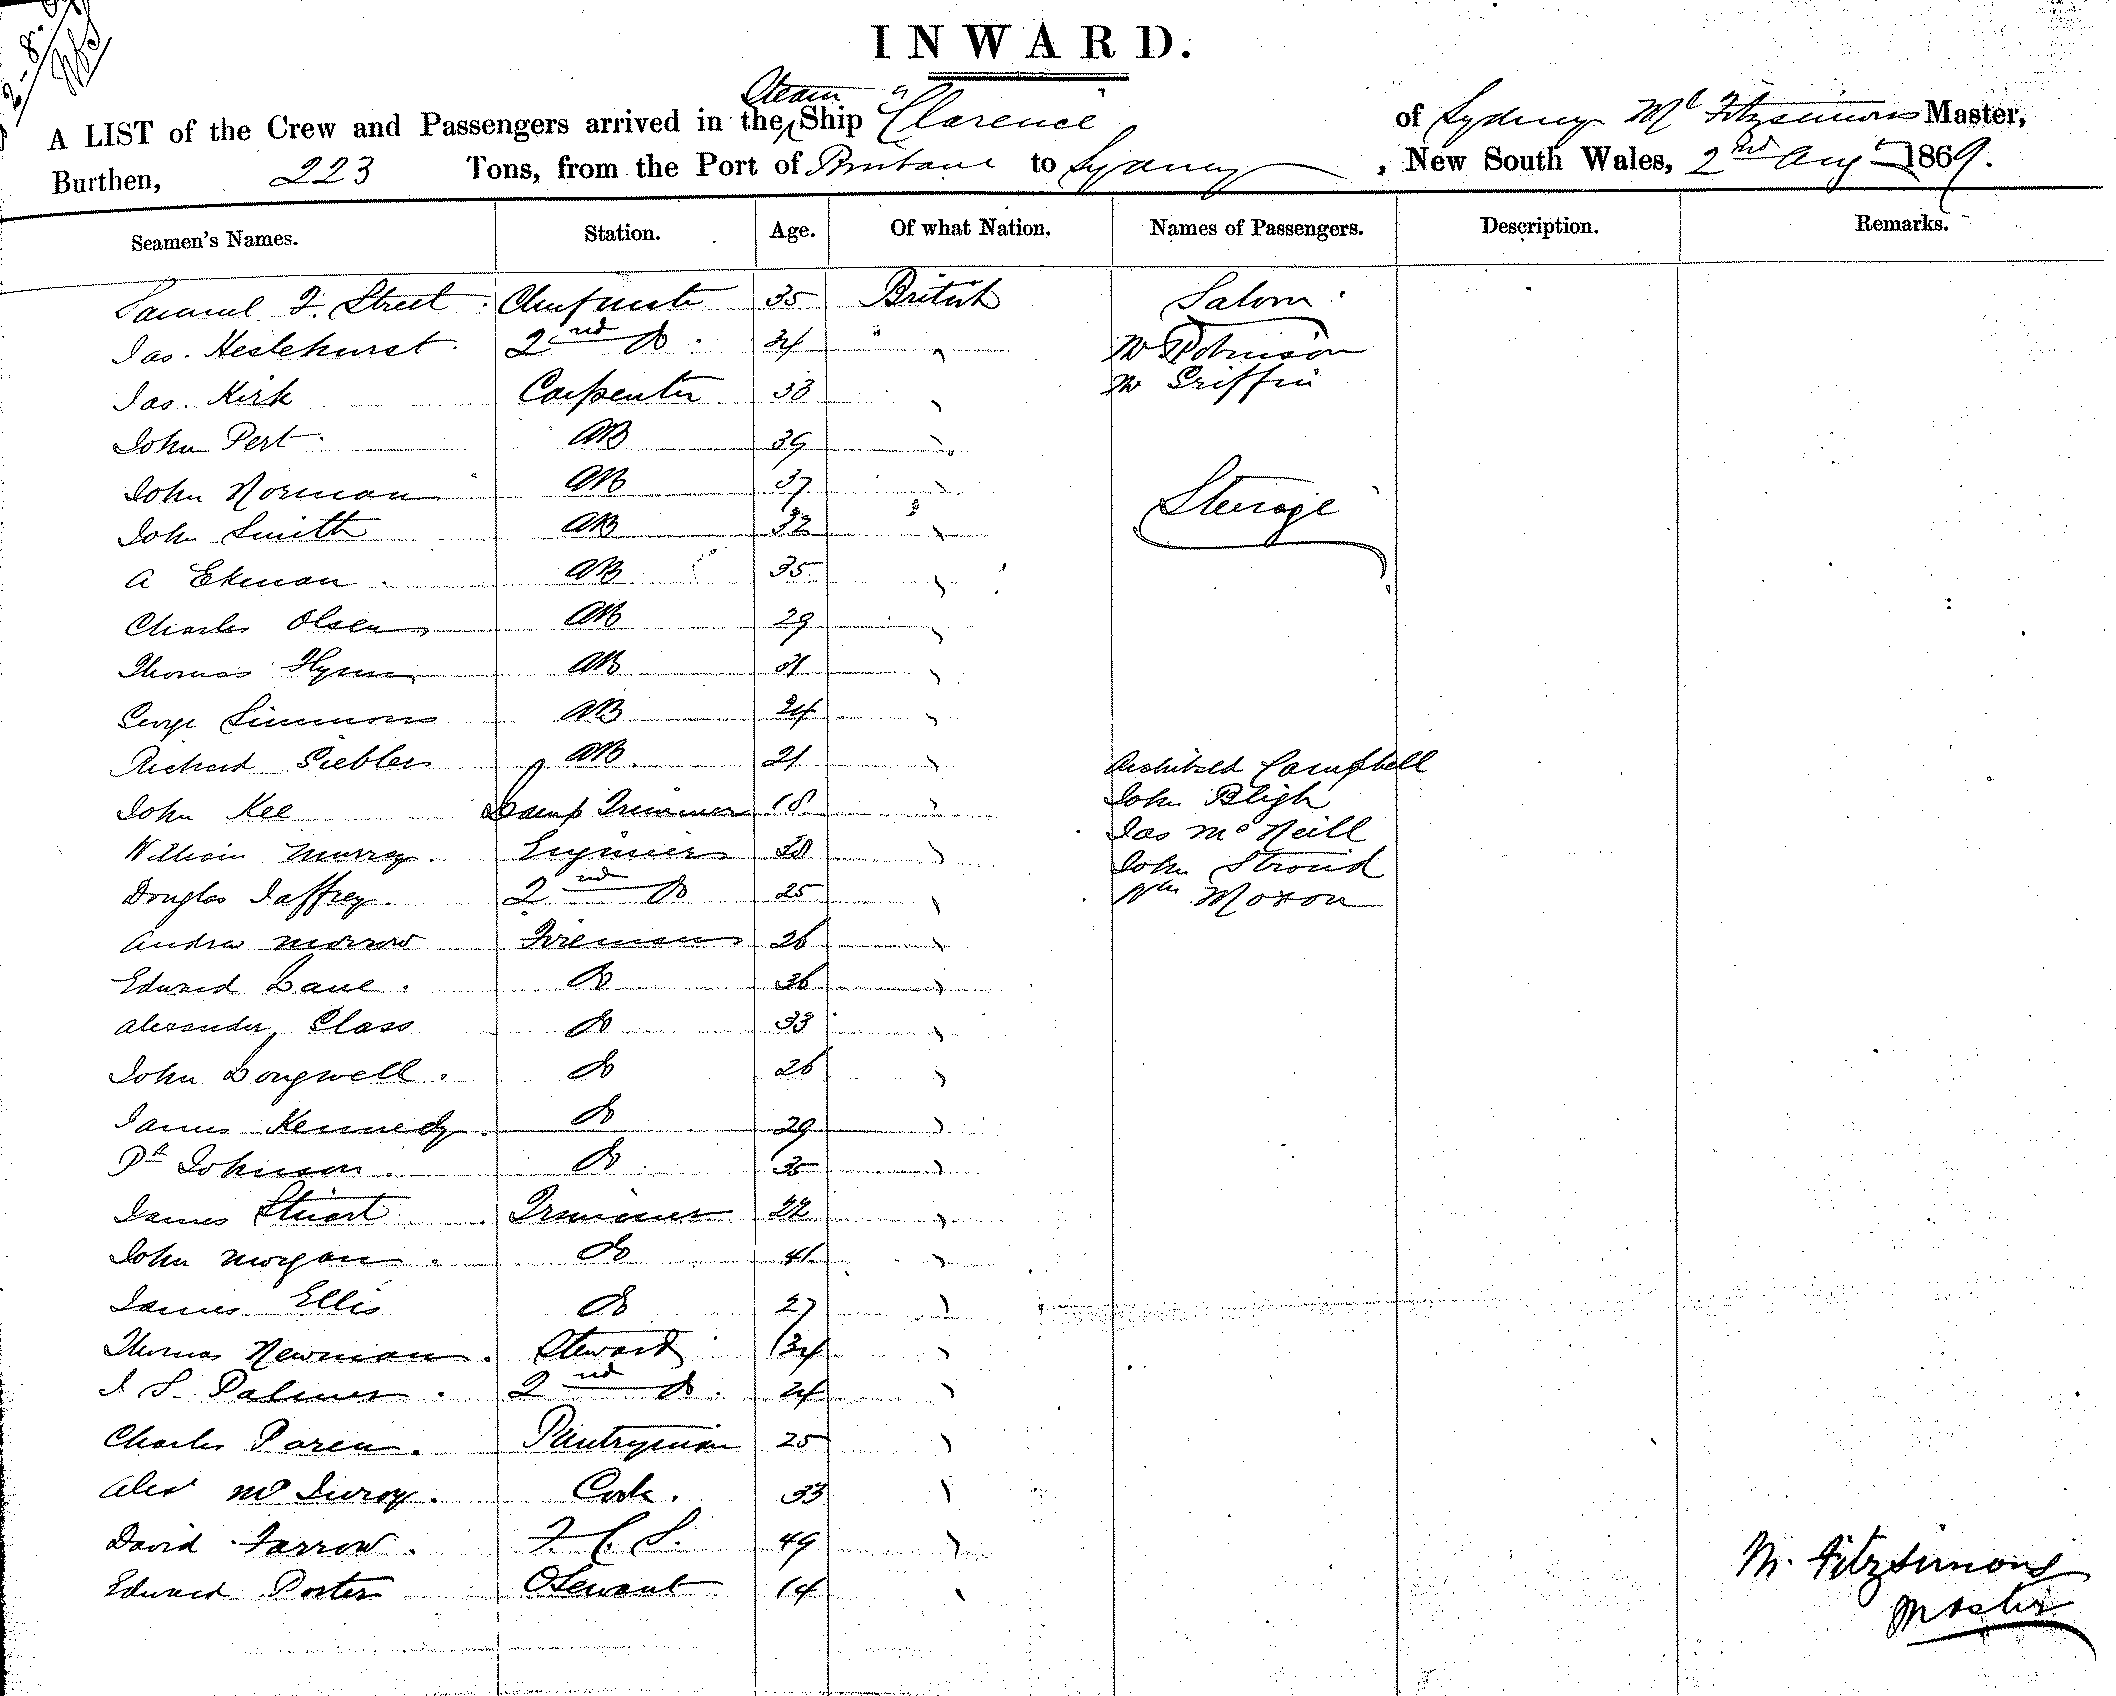 INWARD.
A LIST of the Crew and Passengers arrived in the Steam Ship "Clarence" of Sydney Mc Fitzsimons Master,
Burthen, 223 Tons, from the Port of Brisbane to Sydney, New South Wales, 2nd Augt 1869.
Seamen's Names. Station. Age. Of what Nation. Names of Passengers. Description. Remarks.
Samuel F. Street Chief mate 35 British Saloon
Jas. Heslehurst 2nd Do 34 " Mr Robinson
Jas. Kirk Carpenter 33 " Mr Griffin
John Pert AB 39 "
John Norman AB 37 " Steerage
John Smith AB 32 "
A Ekman AB 35 "
Charles Olsen AB 29 "
Thomas Flynn AB 31 "
George Simmons AB 24 "
Richard AB 21 " Archibald Campbell
John Kee Lamp Trimmer 18 " John Bligh
William Murray Engineer 28 " Jas McNeill
Douglas Jaffrey 2nd Do 25 " John Stroud
Wm Moxon
Andrew Morrow Fireman 26 "
Edward Lane Do 36 "
Alexander Glass Do 33 "
John Longwell Do 26 "
James Kennedy Do 29 "
Pt Johnson Do 35 "
James Stuart Trimmer 22 "
John Morgan Do 41 "
James Ellis Do 27 "
Thomas Newman Steward 34 "
J. S. Palmer 2nd Do 24 "
Charles Paren Pantryman 25 "
Alexr Mc Cook 33 "
David Farrow F. C. S. 49 "
Edward Porter 14 "
M. Fitzsimons
Master